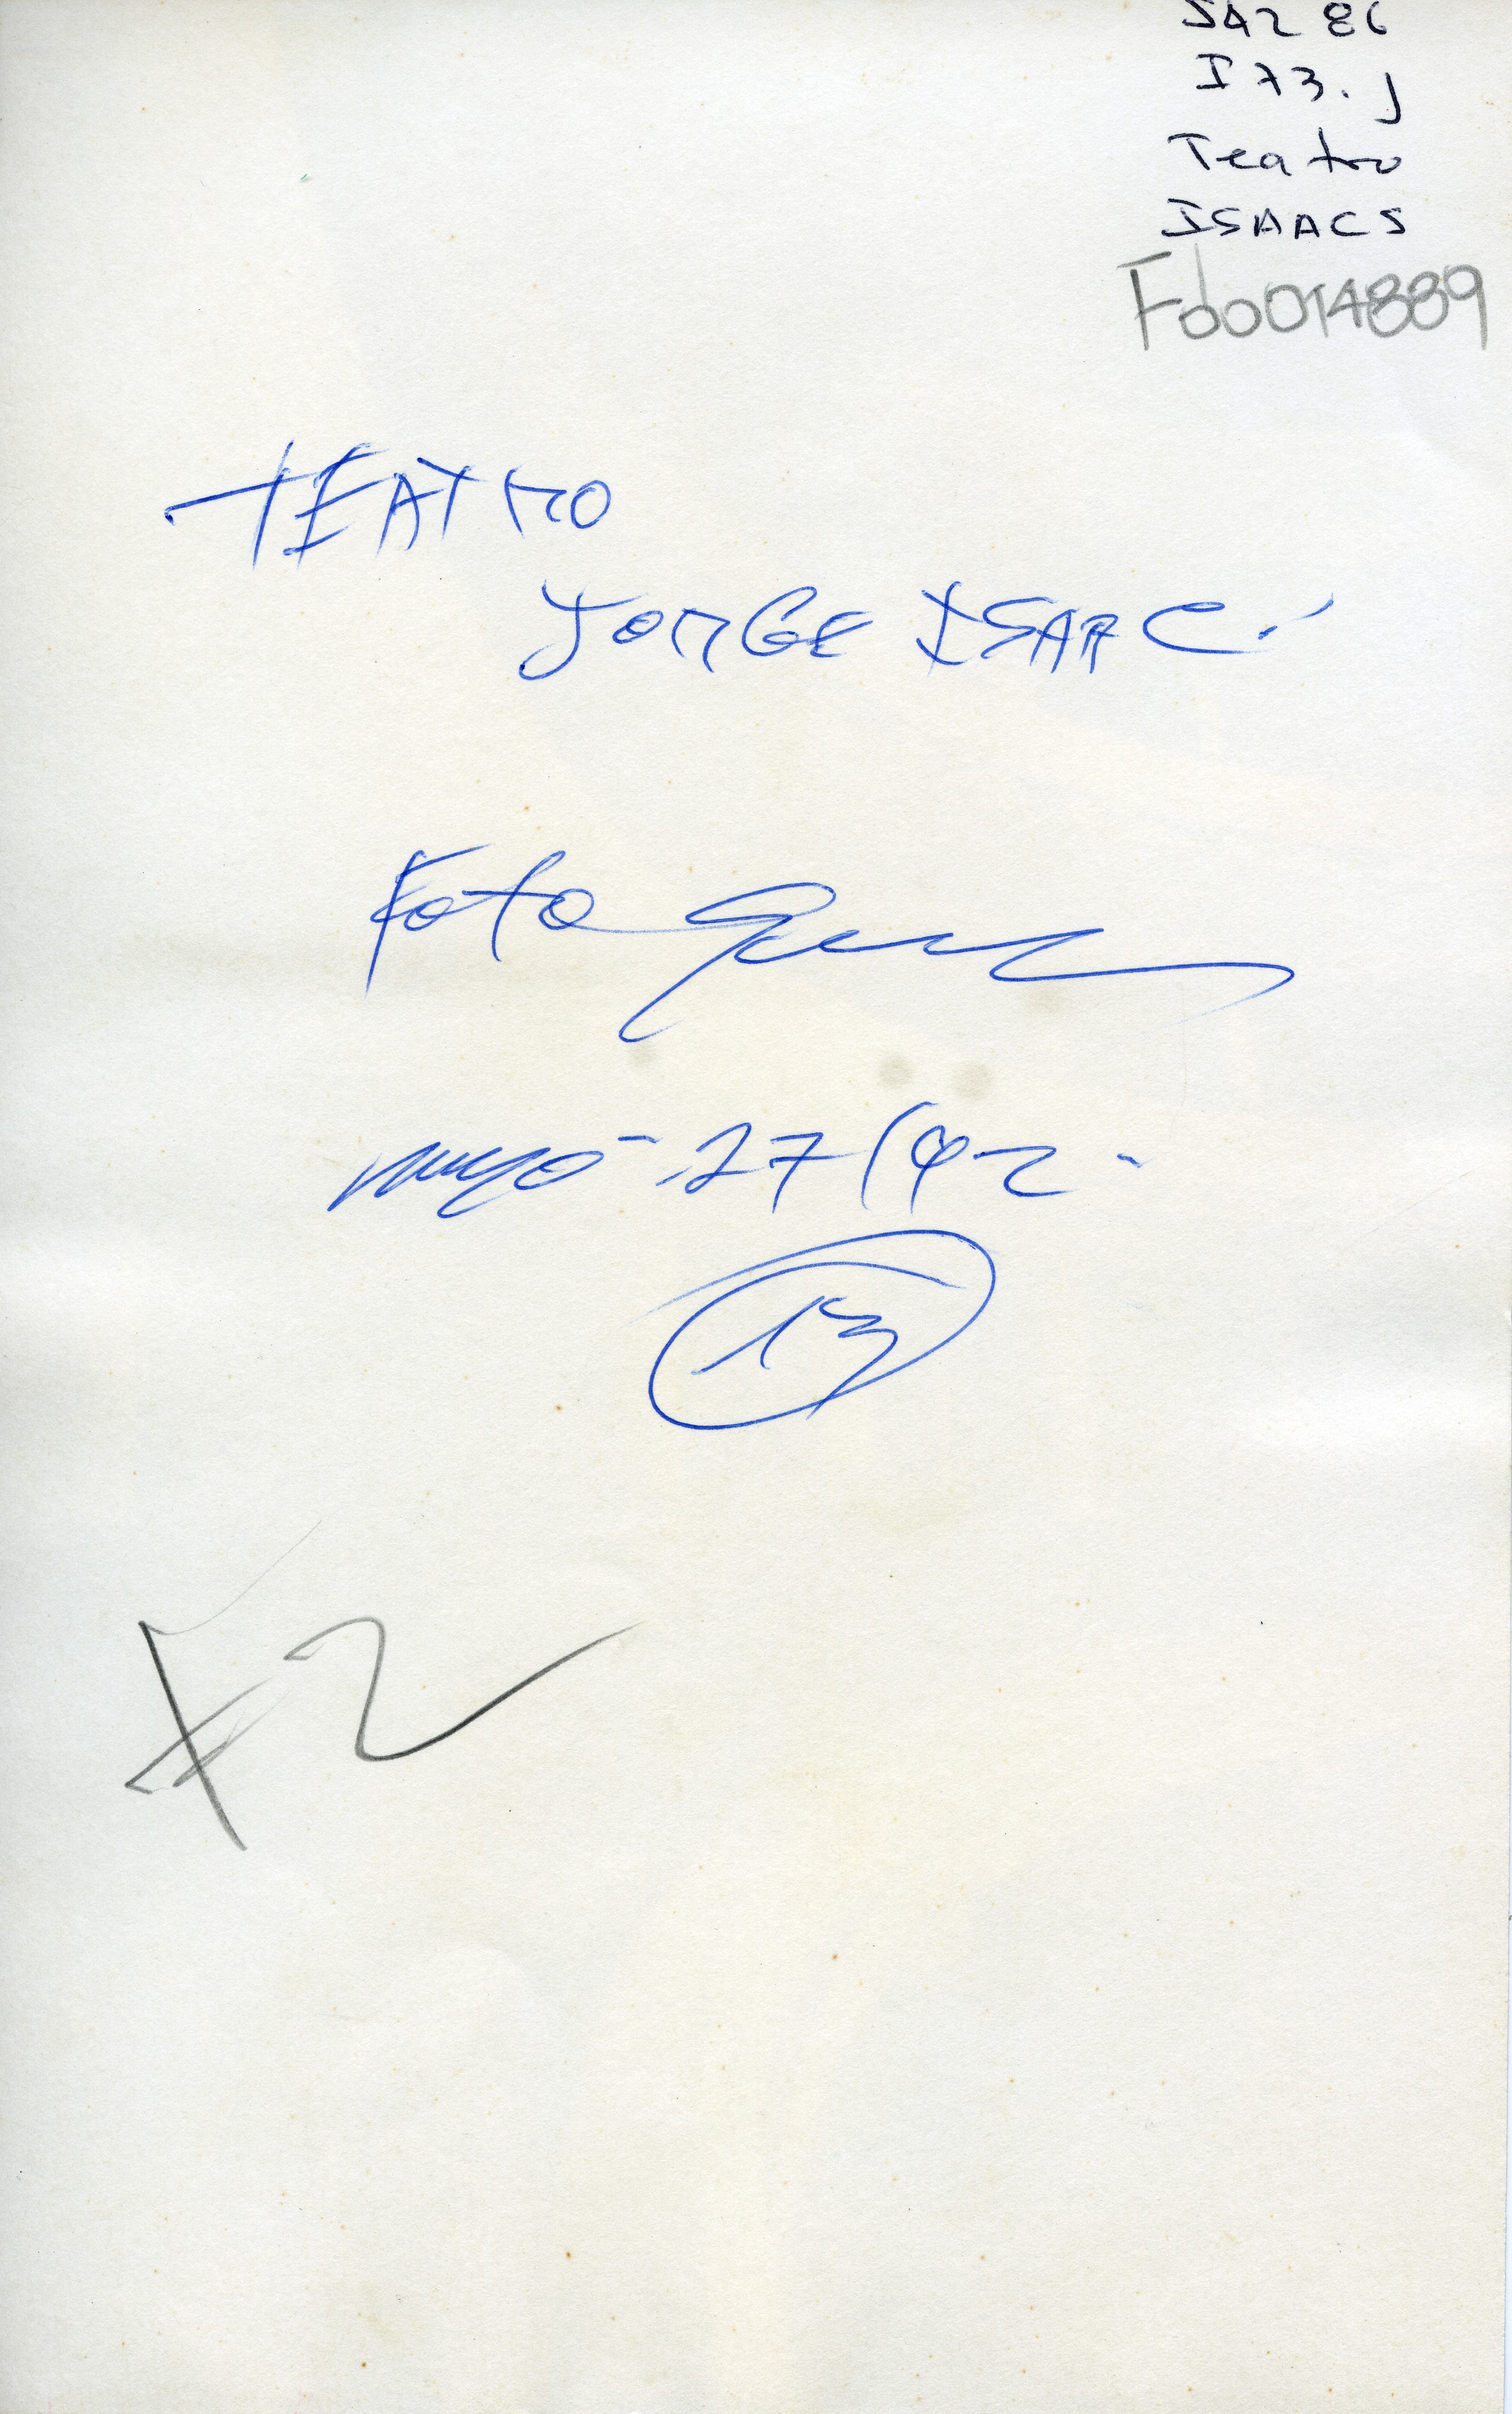 JAZ 86
I73.J
Teatro
ISAACS
Fb0014889
TEATRO
JORGE ISAAC.
Foto
mayo - 27/92 -
13
F2